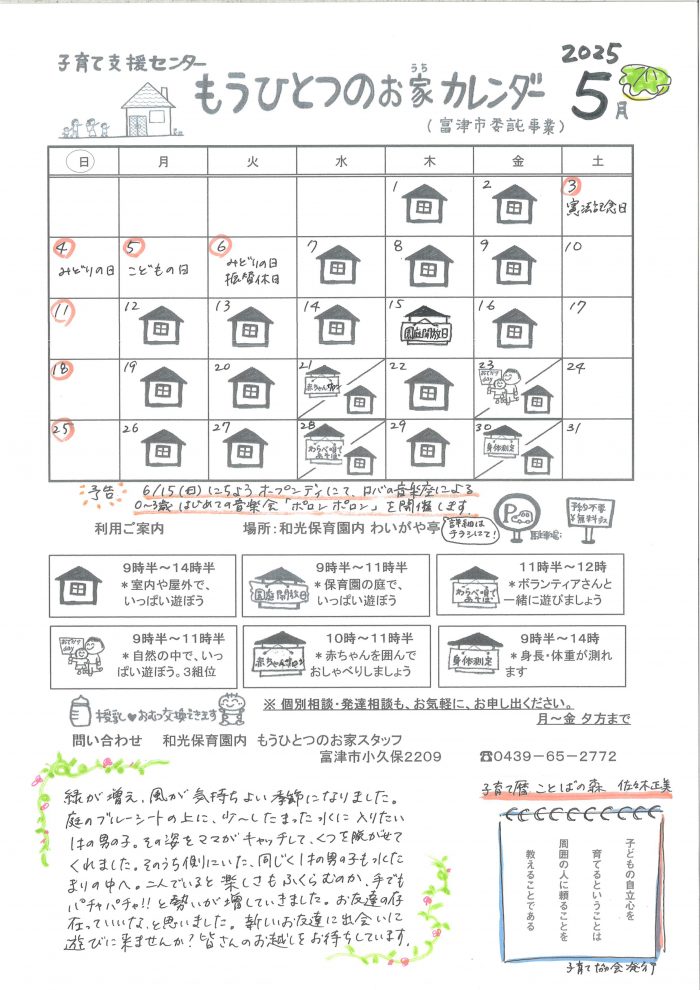 子育て支援センター
2025
もうひとつのお家カレンダー
うち
5月
(富津市委託事業)
日 月 火 水 木 金 土
1 2 3
憲法記念日
4 5 6 7 8 9 10
みどりの日 こどもの日 みどりの日
振替休日
11 12 13 14 15 16 17
園庭開放日
18 19 20 21 22 23 24
赤ちゃんサロン おでかけday
25 26 27 28 29 30 31
わらべ唄であそぼ 身体測定
予告 6/15(日)にちようオープンデイにて、ロバの音楽座による
0~3歳はじめての音楽会「ポロンポロン」を開催します。
利用ご案内 場所:和光保育園内 わいがや亭
詳細はチラシにて!
P
駐車場:
予約不要
¥無料です
9時半~14時半
*室内や屋外で、
いっぱい遊ぼう
園庭開放日
9時半~11時半
*保育園の庭で、
いっぱい遊ぼう
わらべ唄であそぼ
11時半~12時
*ボランティアさんと
一緒に遊びましょう
おでかけday
9時半~11時半
*自然の中で、いっ
ぱい遊ぼう。3組位
赤ちゃんサロン
10時~11時半
*赤ちゃんを囲んで
おしゃべりしましょう
身体測定
9時半~14時
*身長・体重が測れ
ます
授乳♥おむつ交換できます
※ 個別相談・発達相談も、お気軽に、お申し出ください。
月~金 夕方まで
問い合わせ 和光保育園内 もうひとつのお家スタッフ
富津市小久保2209 ☎0439-65-2772
緑が増え、風が気持ちよい季節になりました。
庭のブルーシートの上に、少~したまった水に入りたい
1才の男の子。その姿をママがキャッチして、くつを脱がせて
くれました。そのうち側にいた、同じく1才の男の子も水た
まりの中へ。二人でいると楽しさもふくらむのか、手でも
パチャパチャ!!と勢いが増していきました。お友達の存
在っていいな、と思いました。新しいお友達に出会いに
遊びに来ませんか?皆さんのお越しをお待ちしています。
子育て暦 ことばの森 佐々木正美
子どもの自立心を
育てるということは
周囲の人に頼ることを
教えることである
子育て協会発行